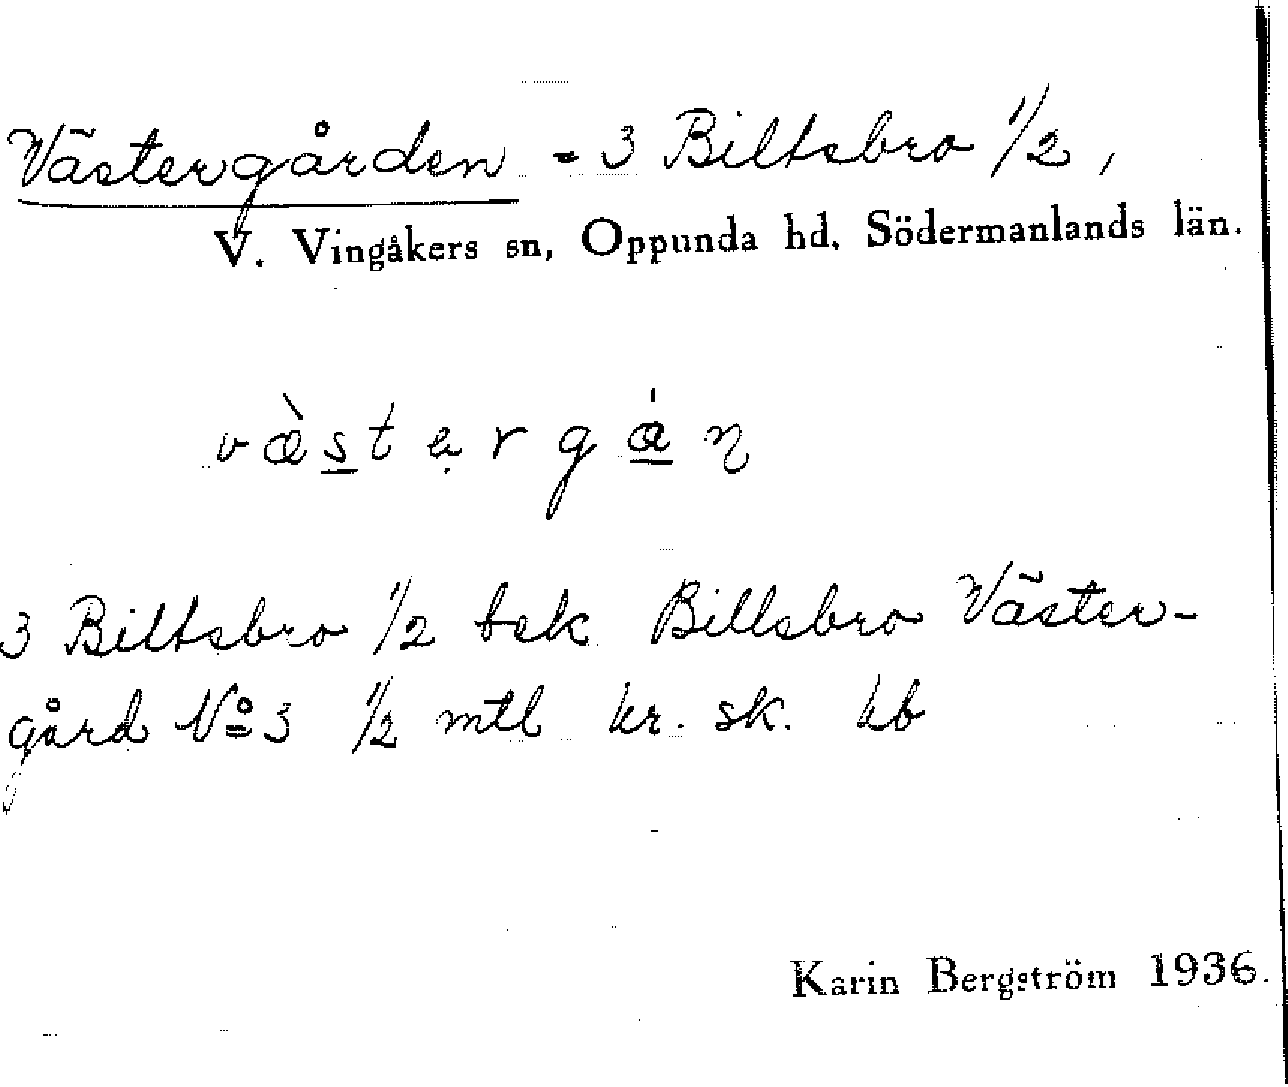 Västergården = 3 Biltsbro 1/2,
V. Vingåkers sn, Oppunda hd, Södermanlands län.
3 Biltsbro 1/2 bek Billsbro Väster-
gård No 3 1/2 mtl kr. sk. kb
Karin Bergström 1936.